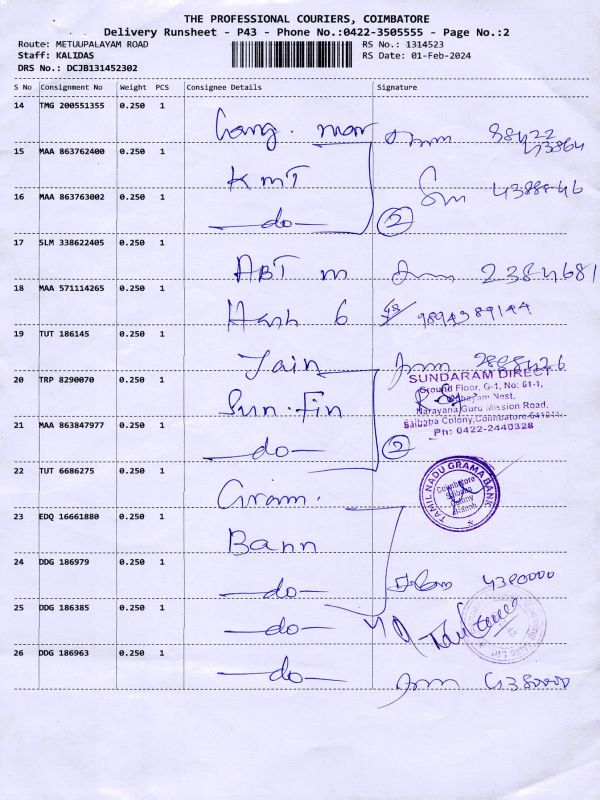 THE PROFESSIONAL COURIERS, COIMBATORE
Delivery Runsheet - P43 - Phone No.:0422-3505555 - Page No.:2
Route: METUUPALAYAM ROAD
RS No.: 1314523
Staff: KALIDAS
RS Date: 01-Feb-2024
DRS No.: DCJB131452302
S No Consignment No Weight PCS Consignee Details Signature
14 TMG 200551355 0.250 1
15 MAA 863762400 0.250 1 KMT
16 MAA 863763002 0.250 1 -do- 2
17 SLM 338622405 0.250 1 ABT m 2384681
18 MAA 571114265 0.250 1 Hash 6 9894389144
19 TUT 186145 0.250 1 Jain
20 TRP 8290070 0.250 1 Sun.Fin
SUNDARAM DIRECT
Ground Floor, G-1, No: 61-1,
Nest,
Narayana Guru Mission Road,
Saibaba Colony, Coimbatore-641011.
Ph: 0422-2440328
21 MAA 863847977 0.250 1 -do- 2
22 TUT 6686275 0.250 1 Gram.
TAMIL NADU GRAMA BANK
Coimbatore
Saibaba
Colony
Branch
23 EDQ 16661880 0.250 1 Bann
24 DDG 186979 0.250 1 -do- 4380000
25 DDG 186385 0.250 1 -do-
26 DDG 186963 0.250 1 -do- 4380000